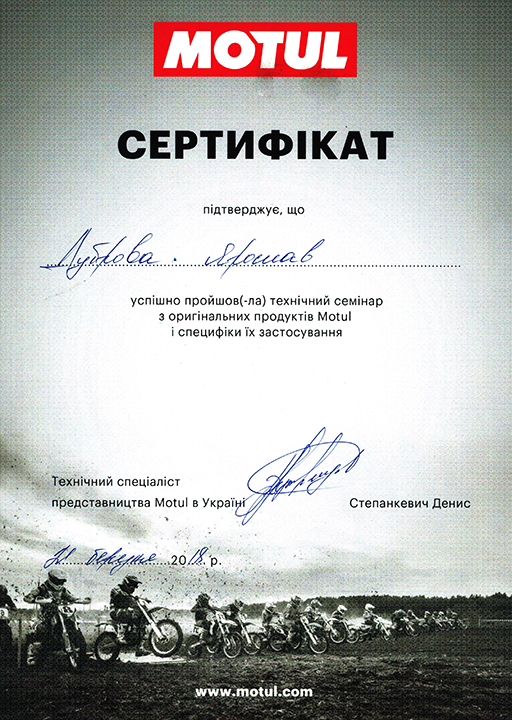 MOTUL
СЕРТИФІКАТ
підтверджує, що
Ярослав
успішно пройшов(-ла) технічний семінар
з оригінальних продуктів Motul
і специфіки їх застосування
Технічний спеціаліст
представництва Motul в Україні
Степанкевич Денис
березня 2018 р.
www.motul.com